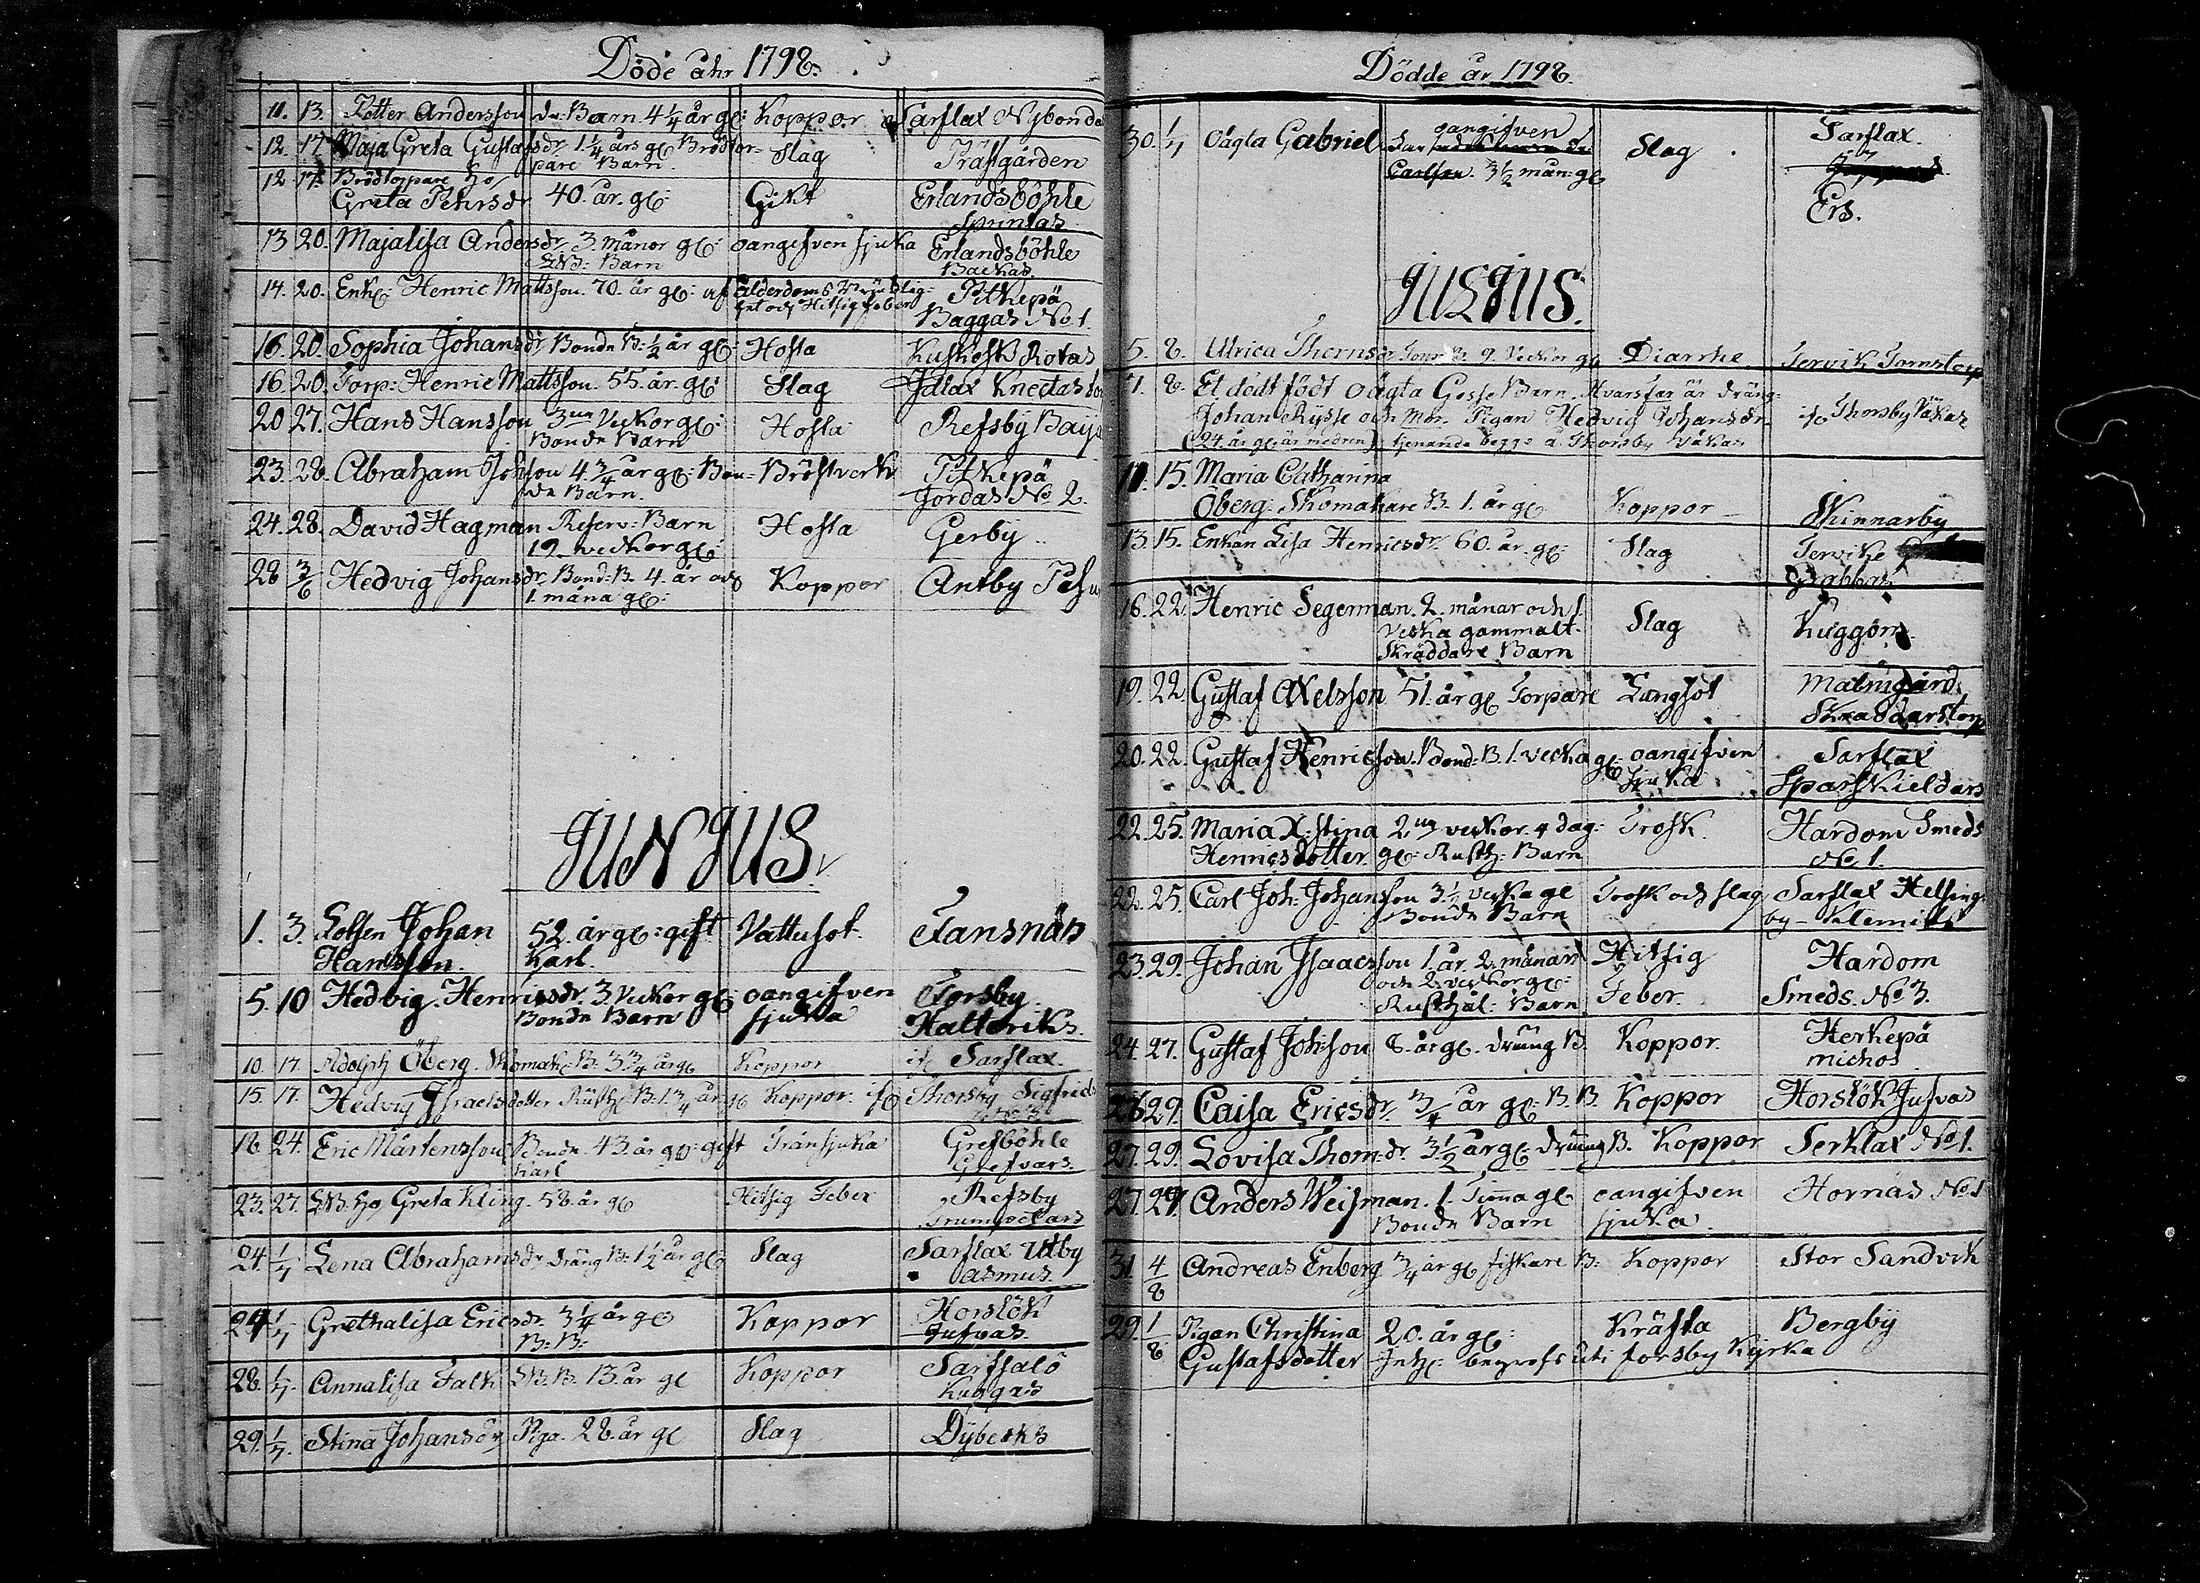 Döde åhr 1798.
11. 13. Petter Andersson Barn 4 1/4 år gl: Koppor Sarflax Nybonda
12. 17. Maja Greta Gustafsdr. 1 1/4 års gl Brödtor=
pare Barn. Slag Präftgården
12 17. Brödtorpare
Greta Pehrsdr 40. år. gl: Gikt Erlandsböhle
Sprintas
13 20. Majalisa Andersdr, 3 månor gl: oangifven sjuka Erlandsböhle
Barn Backas
14. 20. Henric Mattsson. 70. år gl: Ålderdoms
och Hitsig feber Pitkepä
Baggas No 1.
16. 20. Sophia Johansdr Bonde B. 1/2 år gl: Hosta Kuskosk Rotas
16 20. Torp: Henric Mattsson. 55. år. gl: Slag Idlax Knectas
20 27. Hans Hansson 3 Veckor gl:
Bonde Barn Hosta Refsby
23. 28. Abraham Johsson 4. 3/4 år gl: Bon=
de Barn. Bröstverk Pitkepä
Jordas No 2.
24. 28. David Hagman Reserv: Barn
19. veckor gl: Hosta Gerby
28 3/6 Hedvig Johansdr. Bond: B. 4. år och
1. måna gl: Koppor Antby
JUNJUS.
1. 3. Johan
Hansson. 52. år gl: gift
Karl. Vattusot. Tansnäs
5. 10 Hedvig. Henricsdr. 3 Veckor gl:
Bonde Barn oangifven
sjuka Forsby
Kalleriks.
10. 17. Adolph Öberg. Skomak: B. 3 3/4 år gl Koppor Sarflax.
15. 17. Hedvig Israelsdotter Rusth: B. 1. 3/4 år gl Koppor Thorsby Sigfrids
18 24. Eric Mårtensson Bonde. 43. år gl: gift
Karl Trånsjuka Grefböhle
Grefvars.
23. 27. Greta Kling. 58. år gl Hitsig Feber Refsby
24. 1/7 Lena Abrahamsdr Dräng B. 1 1/2 år gl: Slag Sarflax Utby
Asmus.
24 1/7 Grethalisa Ericsdr. 3 1/4 år gl
B: B: Koppor Horslök
Jufvas
28. 1/7. Annalisa Falk B. 13. år gl Koppor Sarfsalö
29. 1/7. Stina Johansdr, Piga. 28. år gl Slag Dybecks
Dödde år 1798.
30. 1/7 Oägta Gabriel oangifven
3 1/2 mån: gl Slag Sarflax.
Ers.
JULJUS.
5. 8. Ulrica Thomsdr Torp: B. 9. Veckor gl Diarrhe Tervik Tomstorp
7. 8. Et dödt födt oägta Gosse Barn. Hvars far är dräng
Johan Rysse och mor. Pigan Hedvig Johansdr. Thorsby Våkas
(24. år gl: är modren) tjenande begge å Thorsby Våkas
11. 15. Maria Catharina
Öberg. Skomakare B. 1. år gl Koppor Skinnarby
13. 15. Enkan Lisa Henricsdr 60. år. gl: Slag Tervike
Grabbas
16. 22. Henric Segerman. 2. månar och 1.
Vecka gammalt.
Skräddare Barn Slag Kuggom
19. 22. Gustaf Axelsson 51. år gl Torpare Lungsot Malmgård
Skraddarstorp
20. 22. Gustaf Henricsson. Bond: B. 1. vecka gl: oangifven
sjuka Sarflax
Sparfkieldars
22. 25. Maria X:stina 2 veckor. 4 dag:
Henricsdotter gl: Rusth: Barn Trosk. Hardom Smeds
No 1.
22. 25. Carl Joh: Johansson 3 1/2 vecka gl
Bonde Barn Trosk och slag Sarflax Helsing
by - Klemiss
23. 29. Johan Isaacsson 1 år. 2. månar
och 2. veckor gl:
Rusthål: Barn Hitsig
Feber Hardom
Smeds. No 3.
24. 27. Gustaf Johsson 8. år gl. Dräng B. Koppor. Herkepä
michos
26 29. Caisa Ericsdr. 3/4 år gl: B. B. Koppor Horslök Jufvas
27. 29. Lovisa Thom:dr. 3 1/2 år gl: Dräng B. Koppor Serklax No 1.
27. 29 Anders Weisman. 1. Timma gl
Bonde Barn oangifven
sjuka. Hornäs No 1
31. 4/8 Andreas Enberg 3/4 år gl fiskare B: Koppor Stor Sandvik
29. 1/8 Pigan Christina 20. år gl: Kräfta Bergby
Gustafsdotter begrofs uti Forsby Kyrka